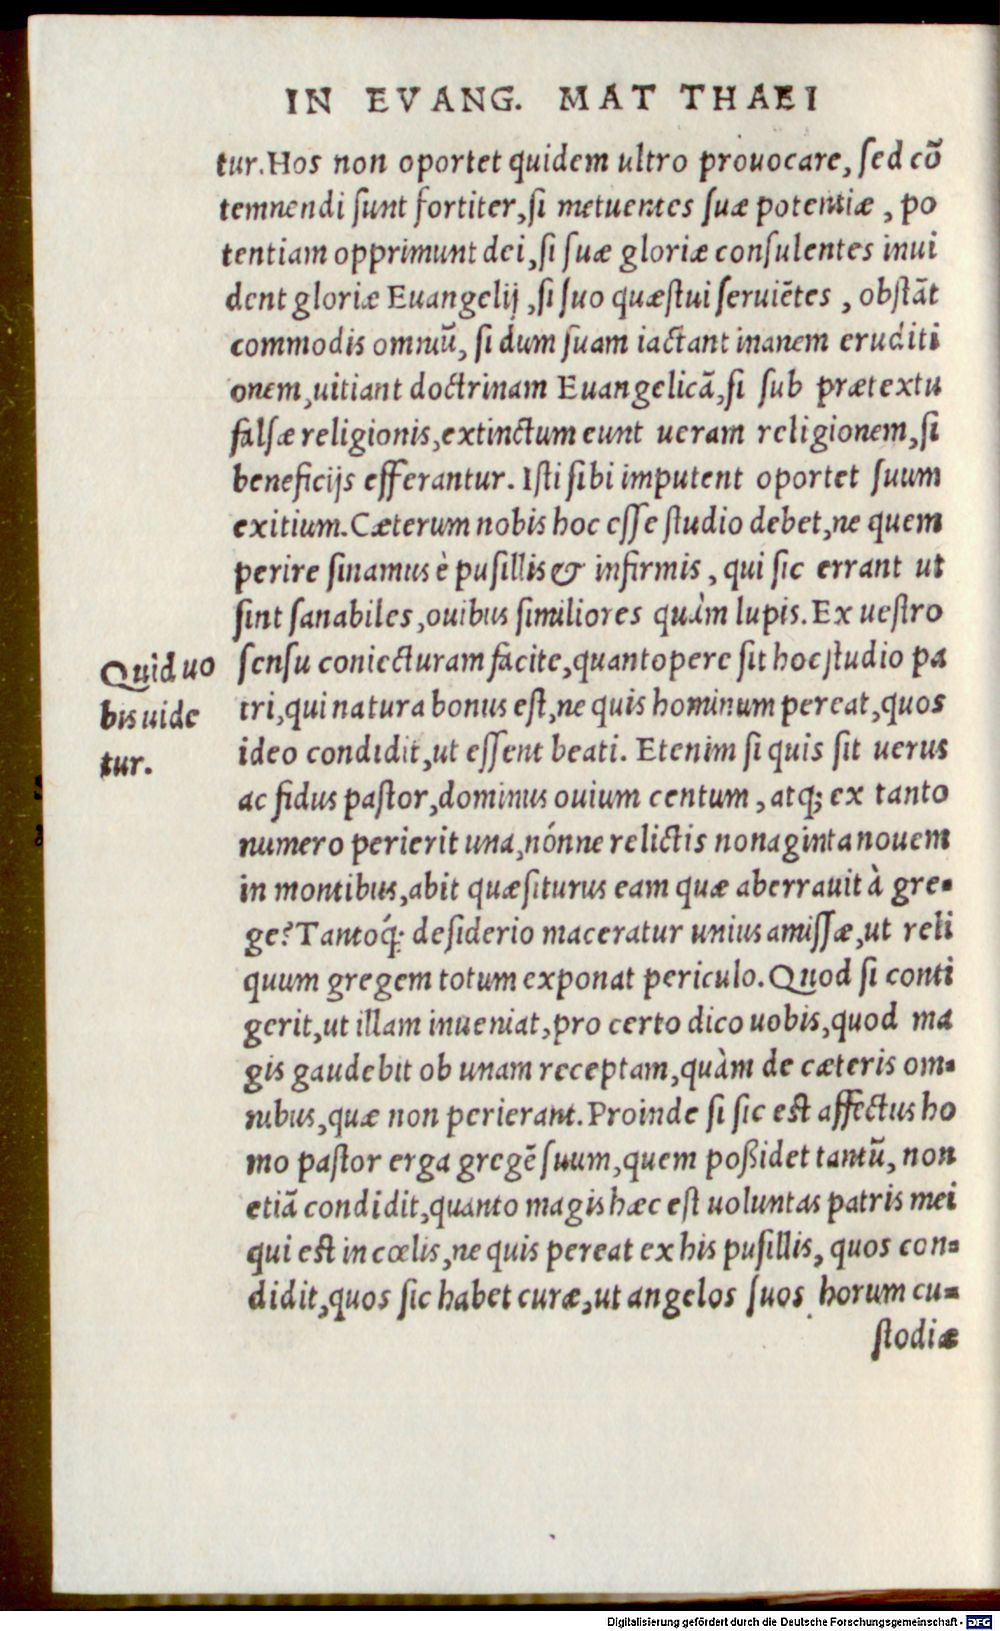 IN EVANG. MATTHAEI
tur. Hos non oportet quidem ultro prouocare, sed cō
temnendi sunt fortiter, si metuentes suæ potentiæ, po
tentiam opprimunt dei, si suæ gloriæ consulentes inui
dent gloriæ Euangelij, si suo quæstui seruiētes, obstāt
commodis omniū, si dum suam iactant inanem eruditi
onem, uitiant doctrinam Euangelicā, si sub prætextu
falsæ religionis, extinctum eunt ueram religionem, si
beneficijs efferantur. Isti sibi imputent oportet suum
exitium. Cæterum nobis hoc esse studio debet, ne quem
perire sinamus è pusillis & infirmis, qui sic errant ut
sint sanabiles, ouibus similiores quàm lupis. Ex uestro
sensu coniecturam facite, quantopere sit hoc studio pa
tri, qui natura bonus est, ne quis hominum pereat, quos
ideo condidit, ut essent beati. Etenim si quis sit uerus
ac fidus pastor, dominus ouium centum, atq; ex tanto
numero perierit una, nónne relictis nonaginta nouem
in montibus, abit quæsiturus eam quæ aberrauit à gre-
ge? Tantoq́; desiderio maceratur unius amissæ, ut reli
quum gregem totum exponat periculo. Quod si conti
gerit, ut illam inueniat, pro certo dico uobis, quod ma
gis gaudebit ob unam receptam, quàm de cæteris om-
nibus, quæ non perierant. Proinde si sic est affectus ho
mo pastor erga gregē suum, quem poßidet tantū, non
etiā condidit, quanto magis hæc est uoluntas patris mei
qui est in cœlis, ne quis pereat ex his pusillis, quos con-
didit, quos sic habet curæ, ut angelos suos horum cu-
stodiæ
Quid uo
bis uide
tur.
Digitalisierung gefördert durch die Deutsche Forschungsgemeinschaft - DFG